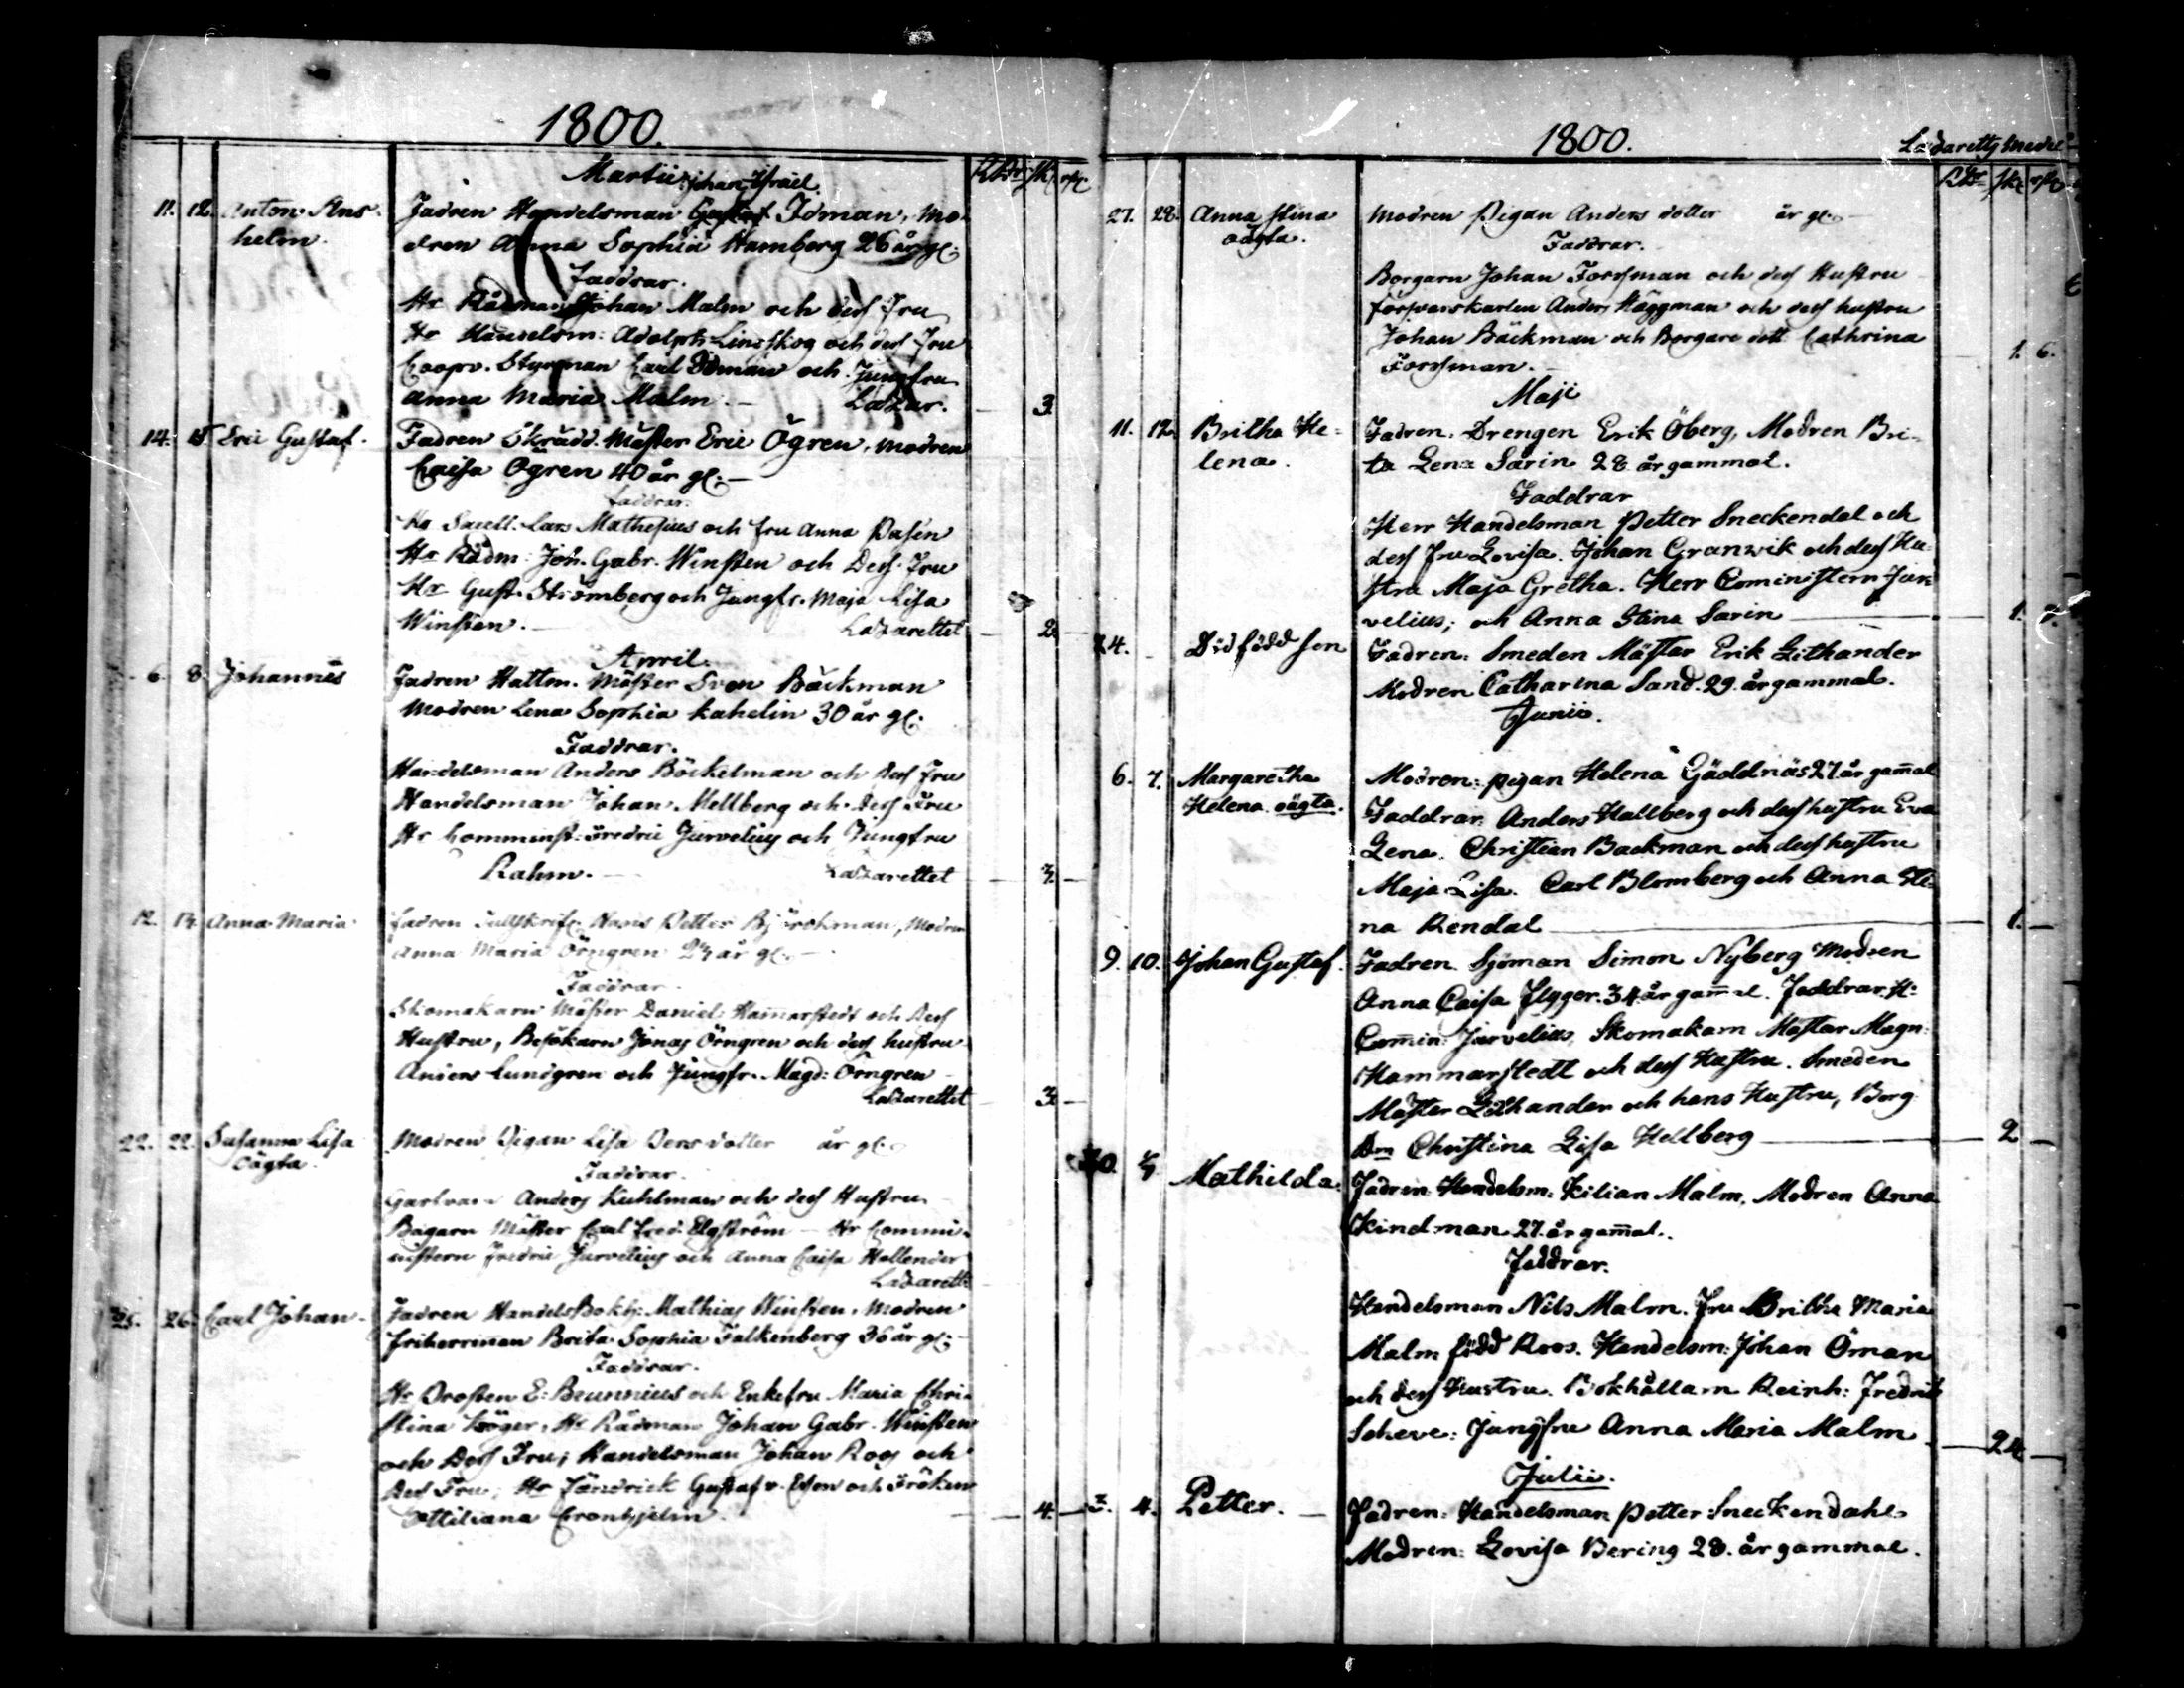 1800.
Martii
RDr sk rs.
Johan Israel
11. 12. Anton Ans-
helm.
Fadren Handelsman Gustaf Idman, Mo-
dren Anna Sophia Hamberg 26 år gl:
Faddrar.
Hr Rådman Johan Malm och dess Fru
Hr Handelsm: Adolph Lindskog och dess Fru
Coopv. Styrman Carl Idman och Jungfru
Anna Maria Malm. — Lazar. — 3.
14. 15. Eric Gustaf.
Fadren Skrädd. Mäster Eric Ögren, modren
Caisa Ögren 40 år gl: —
Faddrar.
Hr Sacell. Lars Mathesius och Fru Anna
Hr Rådm: Joh. Gabr. Winsten och Dess Fru
Hr Gust. Strömberg och Jungfr. Maja Lisa
Winsten. — Lazarettet — 2.
April.
6. 8. Johannes
Fadren Hattm. Mäster Sven Bäckman
Modren Lena Sophia Kahelin 30 år gl:
Faddrar.
Handelsman Anders Böckelman och Dess Fru
Handelsman Johan Mellberg och Dess Fru
Hr Comminist: Fredric Jurvelius och Jungfru
Rahm. — Lazarettet — 3. —
12. 13. Anna Maria
Fadren Hans Petter Björckman, Modren
Anna Maria Örngren 24 år gl. —
Faddrar.
Skomakarn Mäster Daniel Hammarstedt och Dess
Hustru, Besökarn Jonas Örngren och dess hustru
Anders Lundgren och Jungfr. Magd: Örngren
Lazarettet — 3. —
22. 22. Susanna Lisa
oägta.
Modren Pigan Lisa Persdotter år gl.
Faddrar.
Garfvarn Anders Kuhlman och dess Hustru
Bagarn Mäster Carl Fred. Elgström — Hr Commi-
nistern Fredric Jurvelius och Anna Caisa Hollender
Lazarette
25. 26. Carl Johan.
Fadren Handels Bokh: Mathias Winsten, Modren
Friherrinnan Brita Sophia Falkenberg 36 år gl: —
Faddrar.
Hr Prosten E: Brunnius och Enkefru Maria Chri-
stina Höger, Hr Rådman Johan Gabr. Winsten
och Dess Fru; Handelsman Johan Roos och
Dess Fru; Hr Fändrick Gustaf v. Essen och Fröken
Ottiliana Cronhjelm. — 4. —
1800.
Lazaretts Medel
RDr sk rs
27. 28. Anna Stina
oägta.
Modren Pigan Anders dotter år gl. —
Faddrar.
Borgarn Johan Forssman och dess Hustru
Försvarskarlen Anders Häggman och dess hustru
Johan Bäckman och Borgare dott Cathrina
Forssman. — 1. 6.
Maji
11. 12. Britha He-
lena.
Fadren. Drengen Erik Öberg, Modren Bri-
ta Lena Sarin 28 år gammal.
Faddrar
Herr Handelsman Petter Sneckendal och
dess Fru Lovisa. Johan Granvik och dess Hu-
stru Maja Gretha. Herr Cominstern Jur-
velius; och Anna Stina Sarin — 1.
24. Dödfödd son
Fadren: Smeden Mästar Erik Lithander
Modren Catharina Sand. 29. år gammal.
Junii.
6. 7. Margaretha
Helena oägta.
Modren: pigan Helena Gäddnäs 27 år gamal
Faddrar: Anders Hallberg och dess hustru Eva
Lena. Christian Backman och dess hustru
Maja Lisa. Carl Blomberg och Anna Sti-
na Rendal — 1. —
9. 10. Johan Gustaf.
Fadren. Sjöman Simon Nyberg Modren
Anna Caisa Flyger. 34 år gamal. Faddrar. Hr
Comin: Jurvelius, Skomakarn Mästar Magn:
Hammarstedt och dess Hustru. Smeden
Mäster Lithander och hans Hustru, Borg
Dn Christina Lisa Hellberg — 2 —
30. 1/7 Mathilda.
Fadren: Handelsm: Kilian Malm. Modren Anna
Kindman 27. år gamal.
Faddrar.
Handelsman Nils Malm. Fru Britha Maria
Malm född Roos. Handelsm: Johan Öman
och dess Hustru. Bokhållarn Reinh: Fredrik
Scheve: Jungfru Anna Maria Malm — 24 —
Julii.
3. 4. Petter. —
Fadren: Handelsman Petter Sneckendahl
Modren: Lovisa Bering 28. år gammal.